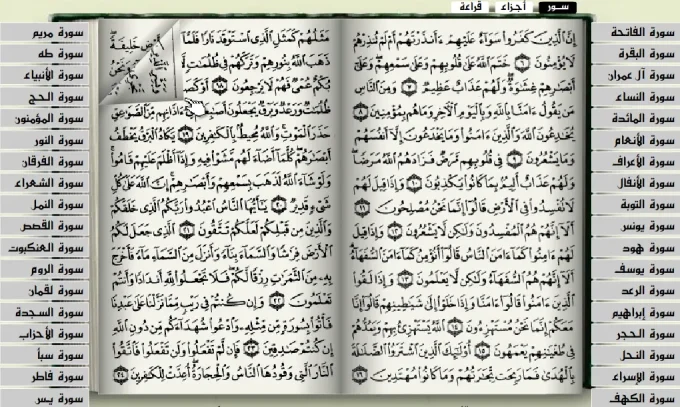 سور
أجزاء
قراءة
سورة الفاتحة
سورة البقرة
سورة آل عمران
سورة النساء
سورة المائدة
سورة الأنعام
سورة الأعراف
سورة الأنفال
سورة التوبة
سورة يونس
سورة هود
سورة يوسف
سورة الرعد
سورة إبراهيم
سورة الحجر
سورة النحل
سورة الإسراء
سورة الكهف
إِنَّ ٱلَّذِينَ كَفَرُوا۟ سَوَآءٌ عَلَيْهِمْ ءَأَنذَرْتَهُمْ أَمْ لَمْ تُنذِرْهُمْ
لَا يُؤْمِنُونَ ٦ خَتَمَ ٱللَّهُ عَلَىٰ قُلُوبِهِمْ وَعَلَىٰ سَمْعِهِمْ وَعَلَىٰٓ
أَبْصَٰرِهِمْ غِشَٰوَةٌ وَلَهُمْ عَذَابٌ عَظِيمٌ ٧ وَمِنَ ٱلنَّاسِ
مَن يَقُولُ ءَامَنَّا بِٱللَّهِ وَبِٱلْيَوْمِ ٱلْءَاخِرِ وَمَا هُم بِمُؤْمِنِينَ ٨
يُخَٰدِعُونَ ٱللَّهَ وَٱلَّذِينَ ءَامَنُوا۟ وَمَا يَخْدَعُونَ إِلَّآ أَنفُسَهُمْ
وَمَا يَشْعُرُونَ ٩ فِى قُلُوبِهِم مَّرَضٌ فَزَادَهُمُ ٱللَّهُ مَرَضًا
وَلَهُمْ عَذَابٌ أَلِيمٌۢ بِمَا كَانُوا۟ يَكْذِبُونَ ١٠ وَإِذَا قِيلَ لَهُمْ
لَا تُفْسِدُوا۟ فِى ٱلْأَرْضِ قَالُوٓا۟ إِنَّمَا نَحْنُ مُصْلِحُونَ ١١
أَلَآ إِنَّهُمْ هُمُ ٱلْمُفْسِدُونَ وَلَٰكِن لَّا يَشْعُرُونَ ١٢ وَإِذَا قِيلَ
لَهُمْ ءَامِنُوا۟ كَمَآ ءَامَنَ ٱلنَّاسُ قَالُوٓا۟ أَنُؤْمِنُ كَمَآ ءَامَنَ ٱلسُّفَهَآءُ
أَلَآ إِنَّهُمْ هُمُ ٱلسُّفَهَآءُ وَلَٰكِن لَّا يَعْلَمُونَ ١٣ وَإِذَا لَقُوا۟
ٱلَّذِينَ ءَامَنُوا۟ قَالُوٓا۟ ءَامَنَّا وَإِذَا خَلَوْا۟ إِلَىٰ شَيَٰطِينِهِمْ قَالُوٓا۟ إِنَّا
مَعَكُمْ إِنَّمَا نَحْنُ مُسْتَهْزِءُونَ ١٤ ٱللَّهُ يَسْتَهْزِئُ بِهِمْ وَيَمُدُّهُمْ
فِى طُغْيَٰنِهِمْ يَعْمَهُونَ ١٥ أُو۟لَٰٓئِكَ ٱلَّذِينَ ٱشْتَرَوُا۟ ٱلضَّلَٰلَةَ
بِٱلْهُدَىٰ فَمَا رَبِحَت تِّجَٰرَتُهُمْ وَمَا كَانُوا۟ مُهْتَدِينَ ١٦
مَثَلُهُمْ كَمَثَلِ ٱلَّذِى ٱسْتَوْقَدَ نَارًا فَلَمَّآ
ذَهَبَ ٱللَّهُ بِنُورِهِمْ وَتَرَكَهُمْ فِى ظُلُمَٰتٍ
بُكْمٌ عُمْىٌ فَهُمْ لَا يَرْجِعُونَ ١٨
ظُلُمَٰتٌ وَرَعْدٌ وَبَرْقٌ يَجْعَلُونَ ءَاذَانِهِم مِّنَ ٱلصَّوَٰعِقِ
حَذَرَ ٱلْمَوْتِ وَٱللَّهُ مُحِيطٌۢ بِٱلْكَٰفِرِينَ ١٩ يَكَادُ ٱلْبَرْقُ يَخْطَفُ
أَبْصَٰرَهُمْ كُلَّمَآ أَضَآءَ لَهُم مَّشَوْا۟ فِيهِ وَإِذَآ أَظْلَمَ عَلَيْهِمْ قَامُوا۟
وَلَوْ شَآءَ ٱللَّهُ لَذَهَبَ بِسَمْعِهِمْ وَأَبْصَٰرِهِمْ إِنَّ ٱللَّهَ عَلَىٰ كُلِّ
شَىْءٍ قَدِيرٌ ٢٠ يَٰٓأَيُّهَا ٱلنَّاسُ ٱعْبُدُوا۟ رَبَّكُمُ ٱلَّذِى خَلَقَكُمْ
وَٱلَّذِينَ مِن قَبْلِكُمْ لَعَلَّكُمْ تَتَّقُونَ ٢١ ٱلَّذِى جَعَلَ لَكُمُ
ٱلْأَرْضَ فِرَٰشًا وَٱلسَّمَآءَ بِنَآءً وَأَنزَلَ مِنَ ٱلسَّمَآءِ مَآءً فَأَخْرَجَ
بِهِۦ مِنَ ٱلثَّمَرَٰتِ رِزْقًا لَّكُمْ فَلَا تَجْعَلُوا۟ لِلَّهِ أَندَادًا وَأَنتُمْ
تَعْلَمُونَ ٢٢ وَإِن كُنتُمْ فِى رَيْبٍ مِّمَّا نَزَّلْنَا عَلَىٰ عَبْدِنَا
فَأْتُوا۟ بِسُورَةٍ مِّن مِّثْلِهِۦ وَٱدْعُوا۟ شُهَدَآءَكُم مِّن دُونِ ٱللَّهِ
إِن كُنتُمْ صَٰدِقِينَ ٢٣ فَإِن لَّمْ تَفْعَلُوا۟ وَلَن تَفْعَلُوا۟ فَٱتَّقُوا۟
ٱلنَّارَ ٱلَّتِى وَقُودُهَا ٱلنَّاسُ وَٱلْحِجَارَةُ أُعِدَّتْ لِلْكَٰفِرِينَ ٢٤
سورة مريم
سورة طه
سورة الأنبياء
سورة الحج
سورة المؤمنون
سورة النور
سورة الفرقان
سورة الشعراء
سورة النمل
سورة القصص
سورة العنكبوت
سورة الروم
سورة لقمان
سورة السجدة
سورة الأحزاب
سورة سبأ
سورة فاطر
سورة يس